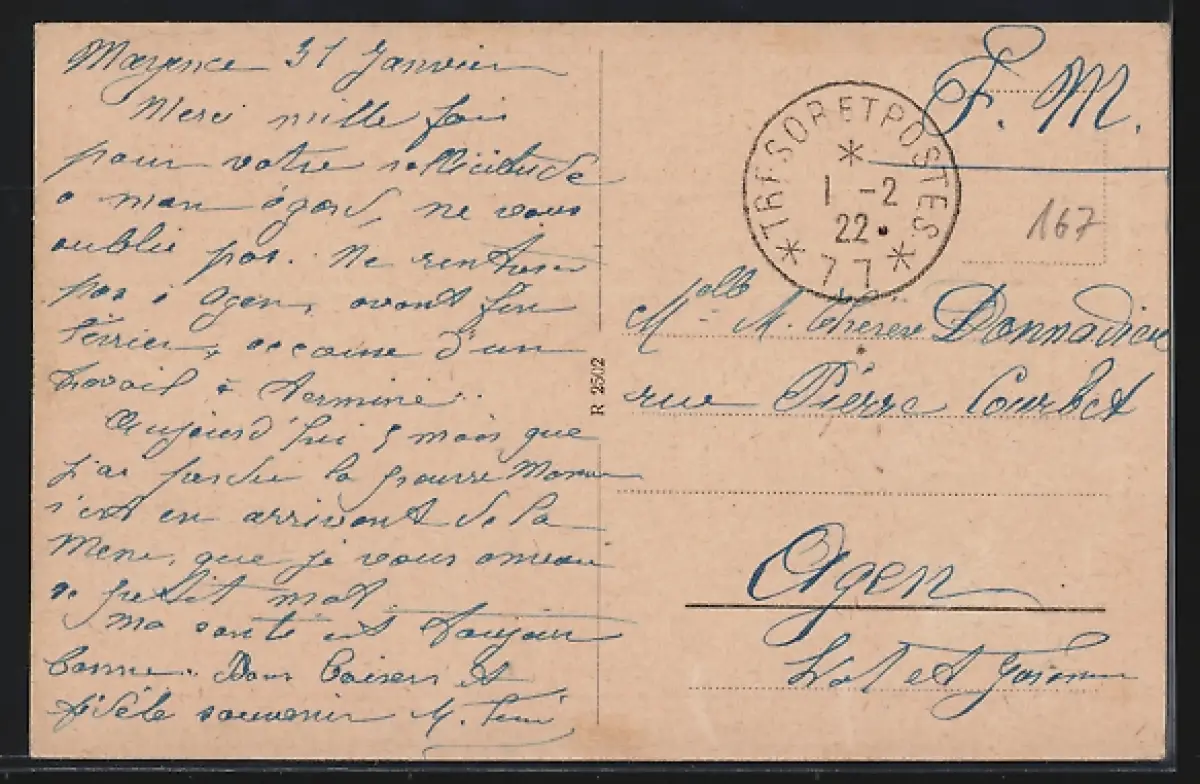 Mayence 31 Janvier
Merci mille fois
pour votre sollicitude
à mon égard, ne vous
oublie pas. Ne rentrerai
pas à Agen, avant fin
février, à cause d'un
travail à terminé.
Aujourd'hui 5 mois que
j'ai perdu la pauvre Maman
c'est en arrivant de la
que je vous
ce petit mot
Ma santé est toujours
bonne. Doux baisers et
fidèle souvenir M.
R 2502
F. M.
TRESOR ET POSTES
1 -2
22
77
167
Melle M. Therese Donnadieu
rue Pierre Courbet
Agen
Lot et Garonne